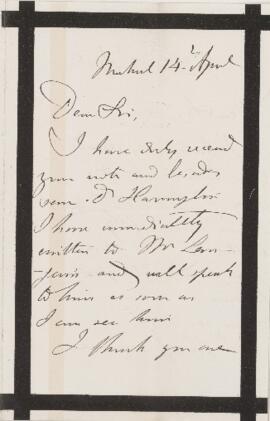 14 April
Dear Sir,
I have duly recd
your note and besides
seen Dr Harrington
I have immediately
written to Mr
and will speak
to him as soon as
I can see him
I thank you